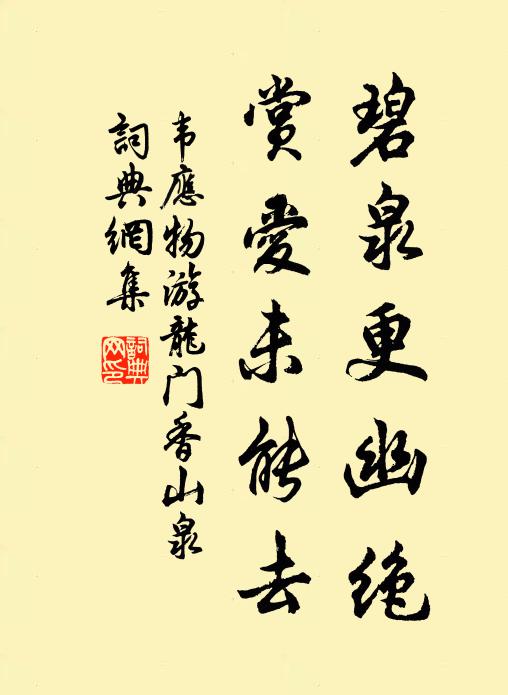 碧泉更幽绝
赏爱未能去
韦应物游龙门香山泉
词典网集
词典网印